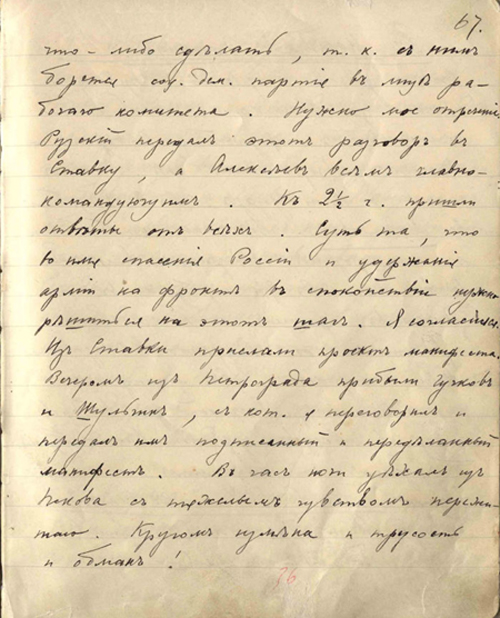 67.
что-либо сдѣлать, т. к. съ нимъ
борется соц. дем. партія въ лицѣ ра-
бочаго комитета. Нужно мое отреченіе.
Рузскій передалъ этотъ разговоръ въ
Ставку, а Алексѣевъ всѣмъ главно-
командующимъ. Къ 2½ ч. пришли
отвѣты отъ всѣхъ. Суть та, что
во имя спасенія Россіи и удержанія
арміи на фронтѣ въ спокойствіи нужно
рѣшиться на этотъ шагъ. Я согласился.
Изъ Ставки прислали проектъ манифеста.
Вечеромъ изъ Петрограда прибыли Гучковъ
и Шульгинъ, съ кот. я переговорилъ и
передалъ имъ подписанный и передѣланный
манифестъ. Въ часъ ночи уѣхалъ изъ
Пскова съ тяжелымъ чувствомъ пережи-
таго. Кругомъ измѣна и трусость
и обманъ!
76